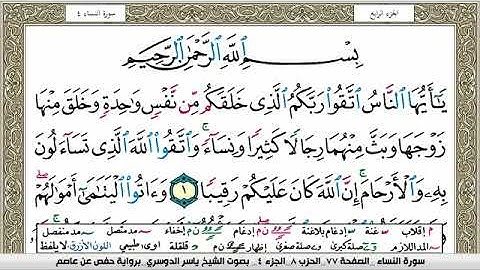 الجزء الرابع
سورة النساء ٤
بِسْمِ ٱللَّهِ ٱلرَّحْمَٰنِ ٱلرَّحِيمِ
يَٰٓأَيُّهَا ٱلنَّاسُ ٱتَّقُوا۟ رَبَّكُمُ ٱلَّذِى خَلَقَكُم مِّن نَّفْسٍ وَٰحِدَةٍ وَخَلَقَ مِنْهَا
زَوْجَهَا وَبَثَّ مِنْهُمَا رِجَالًا كَثِيرًا وَنِسَآءً ۚ وَٱتَّقُوا۟ ٱللَّهَ ٱلَّذِى تَسَآءَلُونَ
بِهِۦ وَٱلْأَرْحَامَ ۚ إِنَّ ٱللَّهَ كَانَ عَلَيْكُمْ رَقِيبًا ١ وَءَاتُوا۟ ٱلْيَتَٰمَىٰٓ أَمْوَٰلَهُمْ ۖ
م إقلاب غنة إدغام بلاغنة إدغام إخفاء مد متصل مد منفصل
المد اللازم صلة كبرى صلة صغرى إظهار قلقلة طبيعي اللون الأزرق لا يلفظ
سورة النساء . الصفحة ٧٧ . الحزب ٨ . الجزء ٤ . بصوت الشيخ ياسر الدوسري . برواية حفص عن عاصم